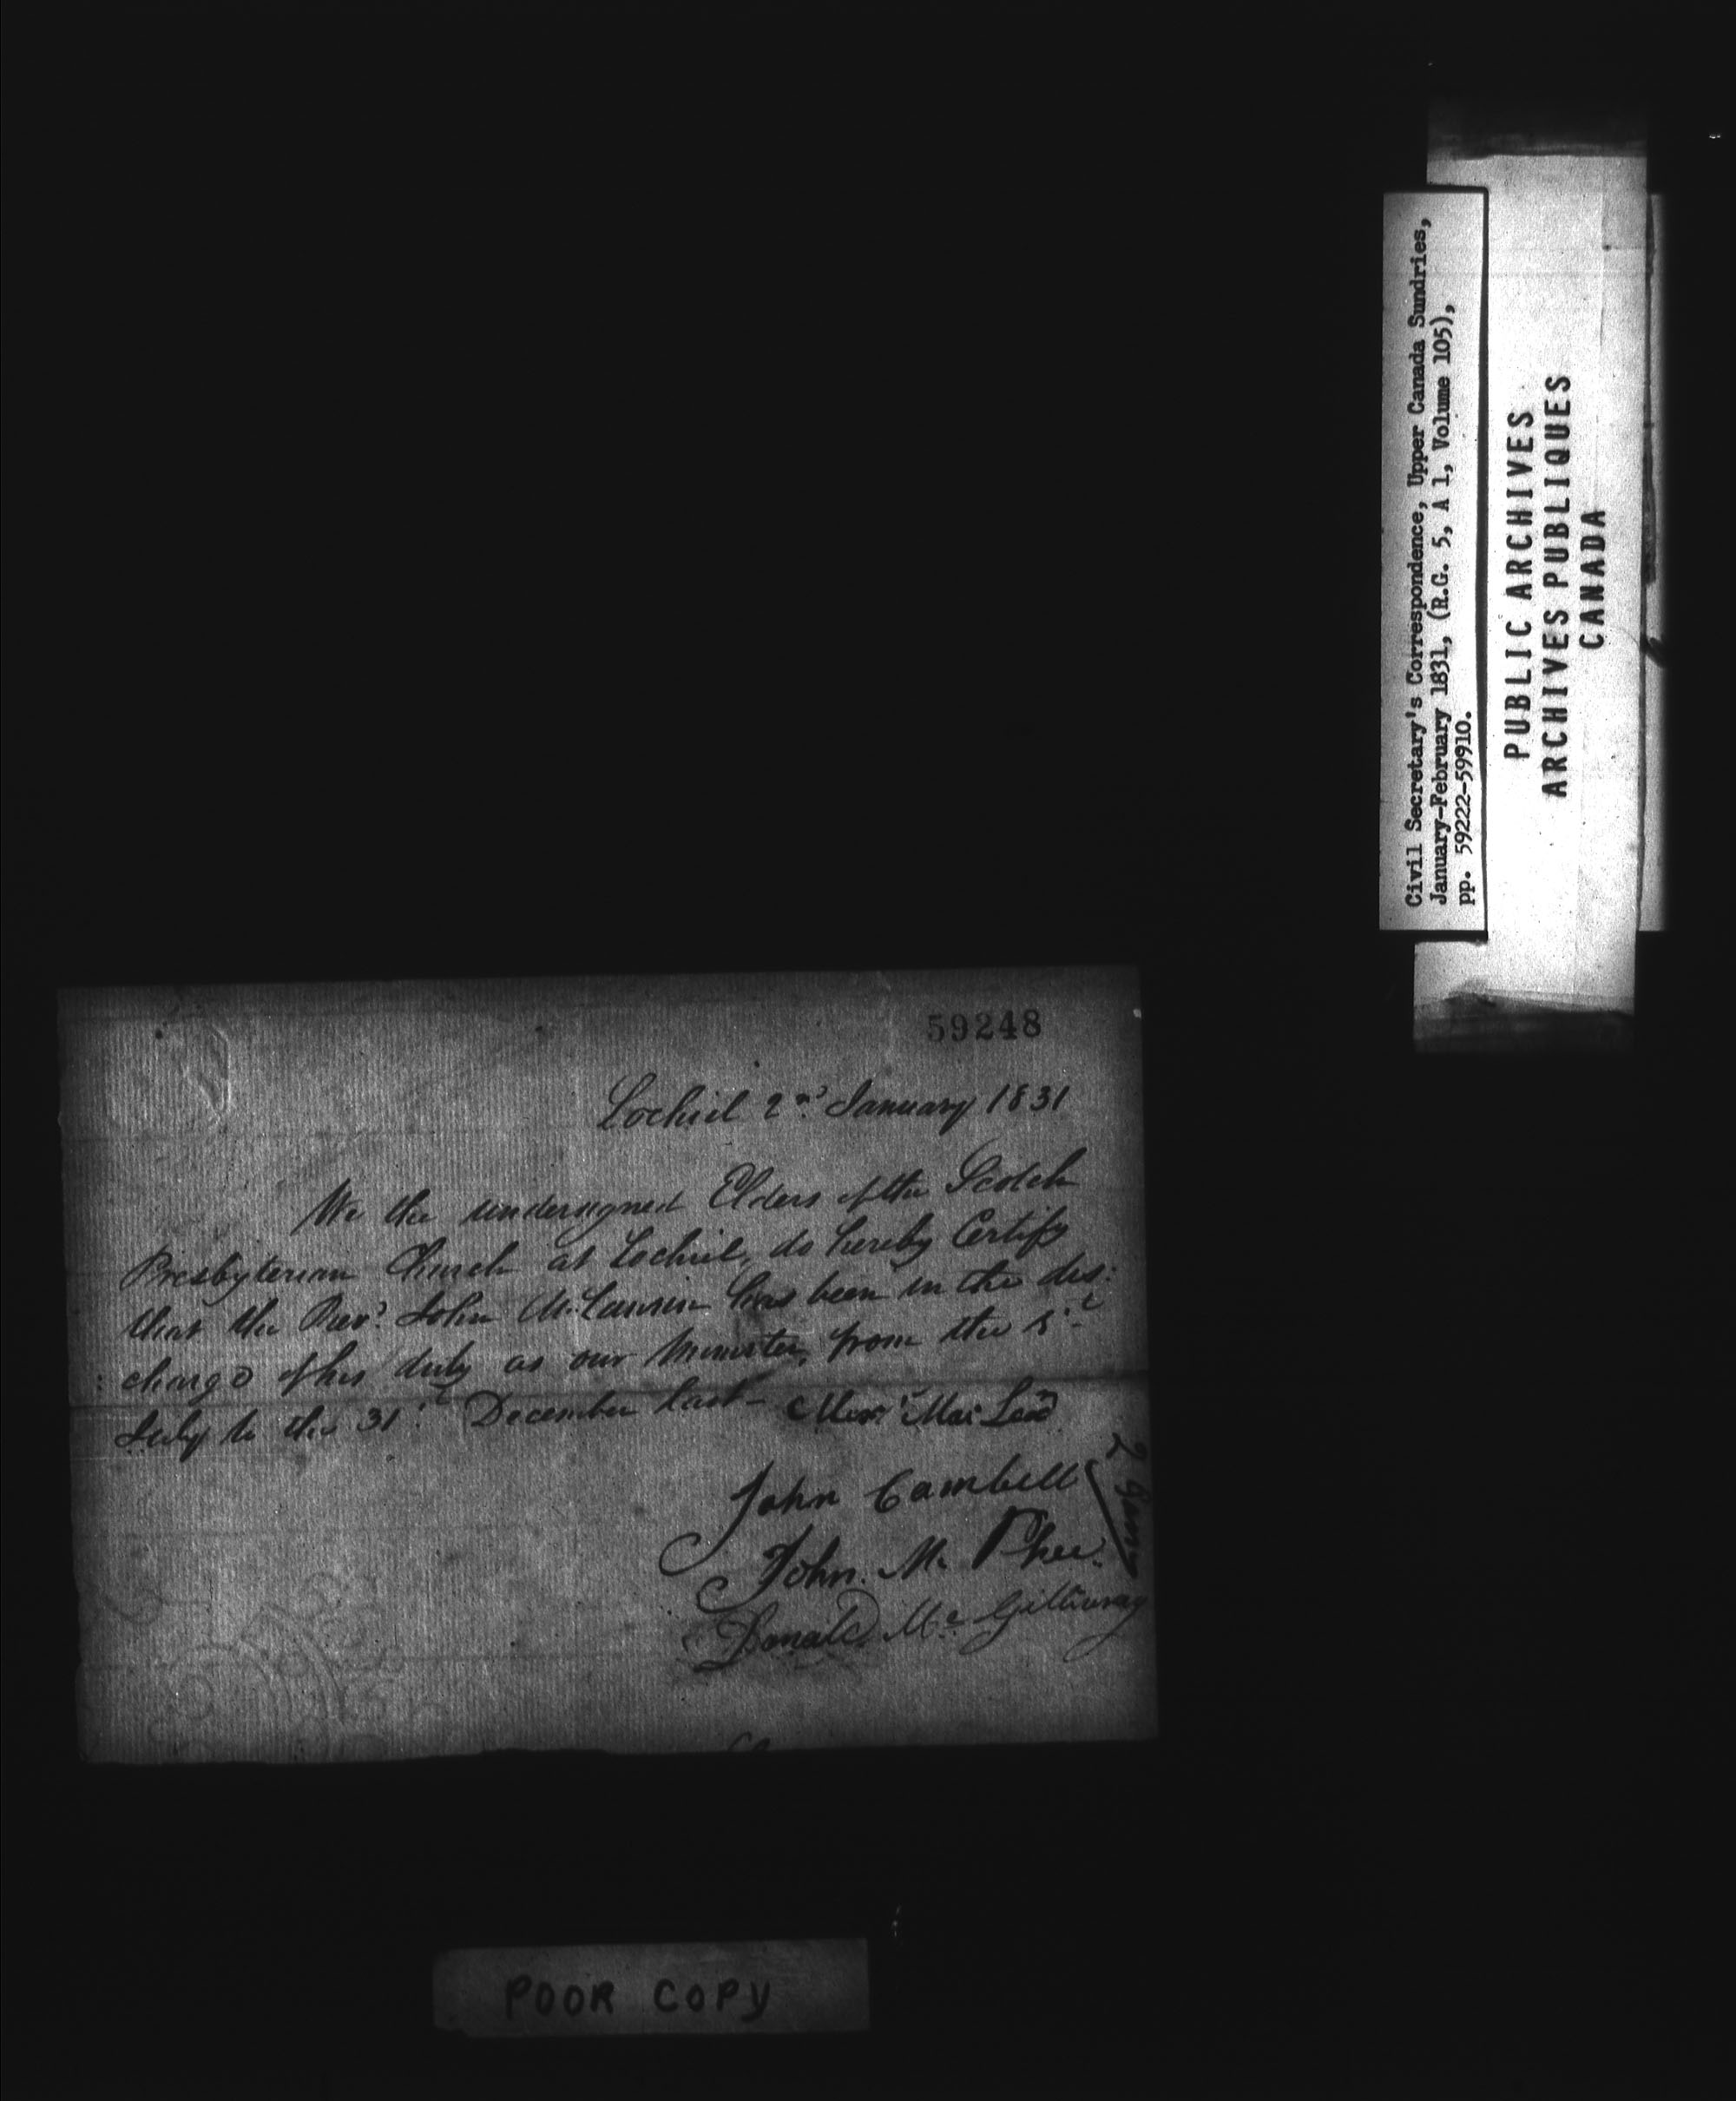 Civil Secretary's Correspondence, Upper Canada Sundries,
January-February 1831, (R.G. 5, A 1, Volume 105),
pp. 59222-59910.
PUBLIC ARCHIVES
ARCHIVES PUBLIQUES
CANADA
59248
Lochiel 2nd January 1831
We the undersigned Elders of the Scotch
Presbyterian Church at Lochiel, do hereby Certify
that the Revd. John McLaurin has been in the dis:
:charge of his duty as our Minister, from the 1st
July to the 31st December last - Alexr. MacLeod
John Cambell
John. Mc Phee.
Donald Mc Gillivray
POOR COPY